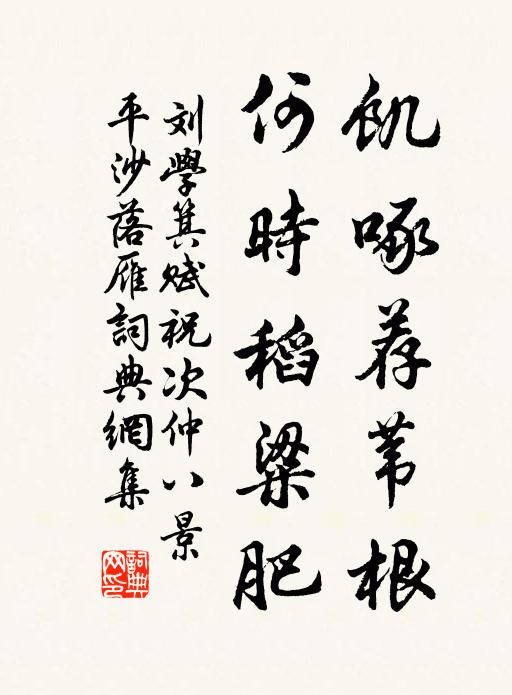 飢啄荐苇根
何時稻粱肥
刘學箕赋祝次仲八景
平沙落雁詞典網集
詞典
网印